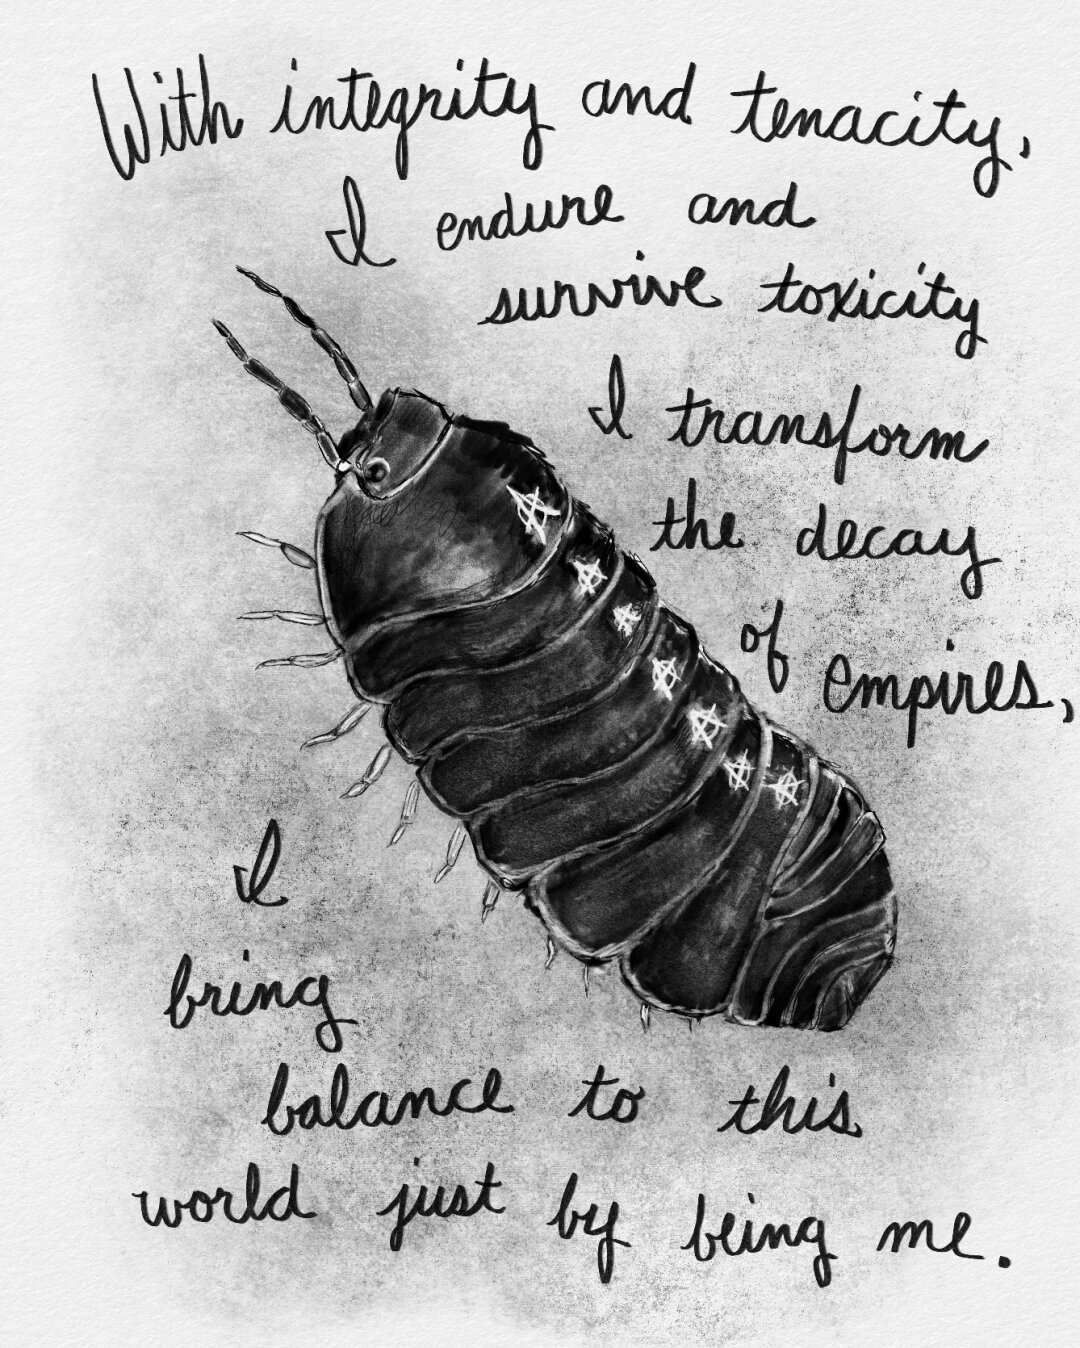 With integrity and tenacity,
I endure and
survive toxicity
I transform
the decay
of empires,
I
bring
balance to this
world just by being me.